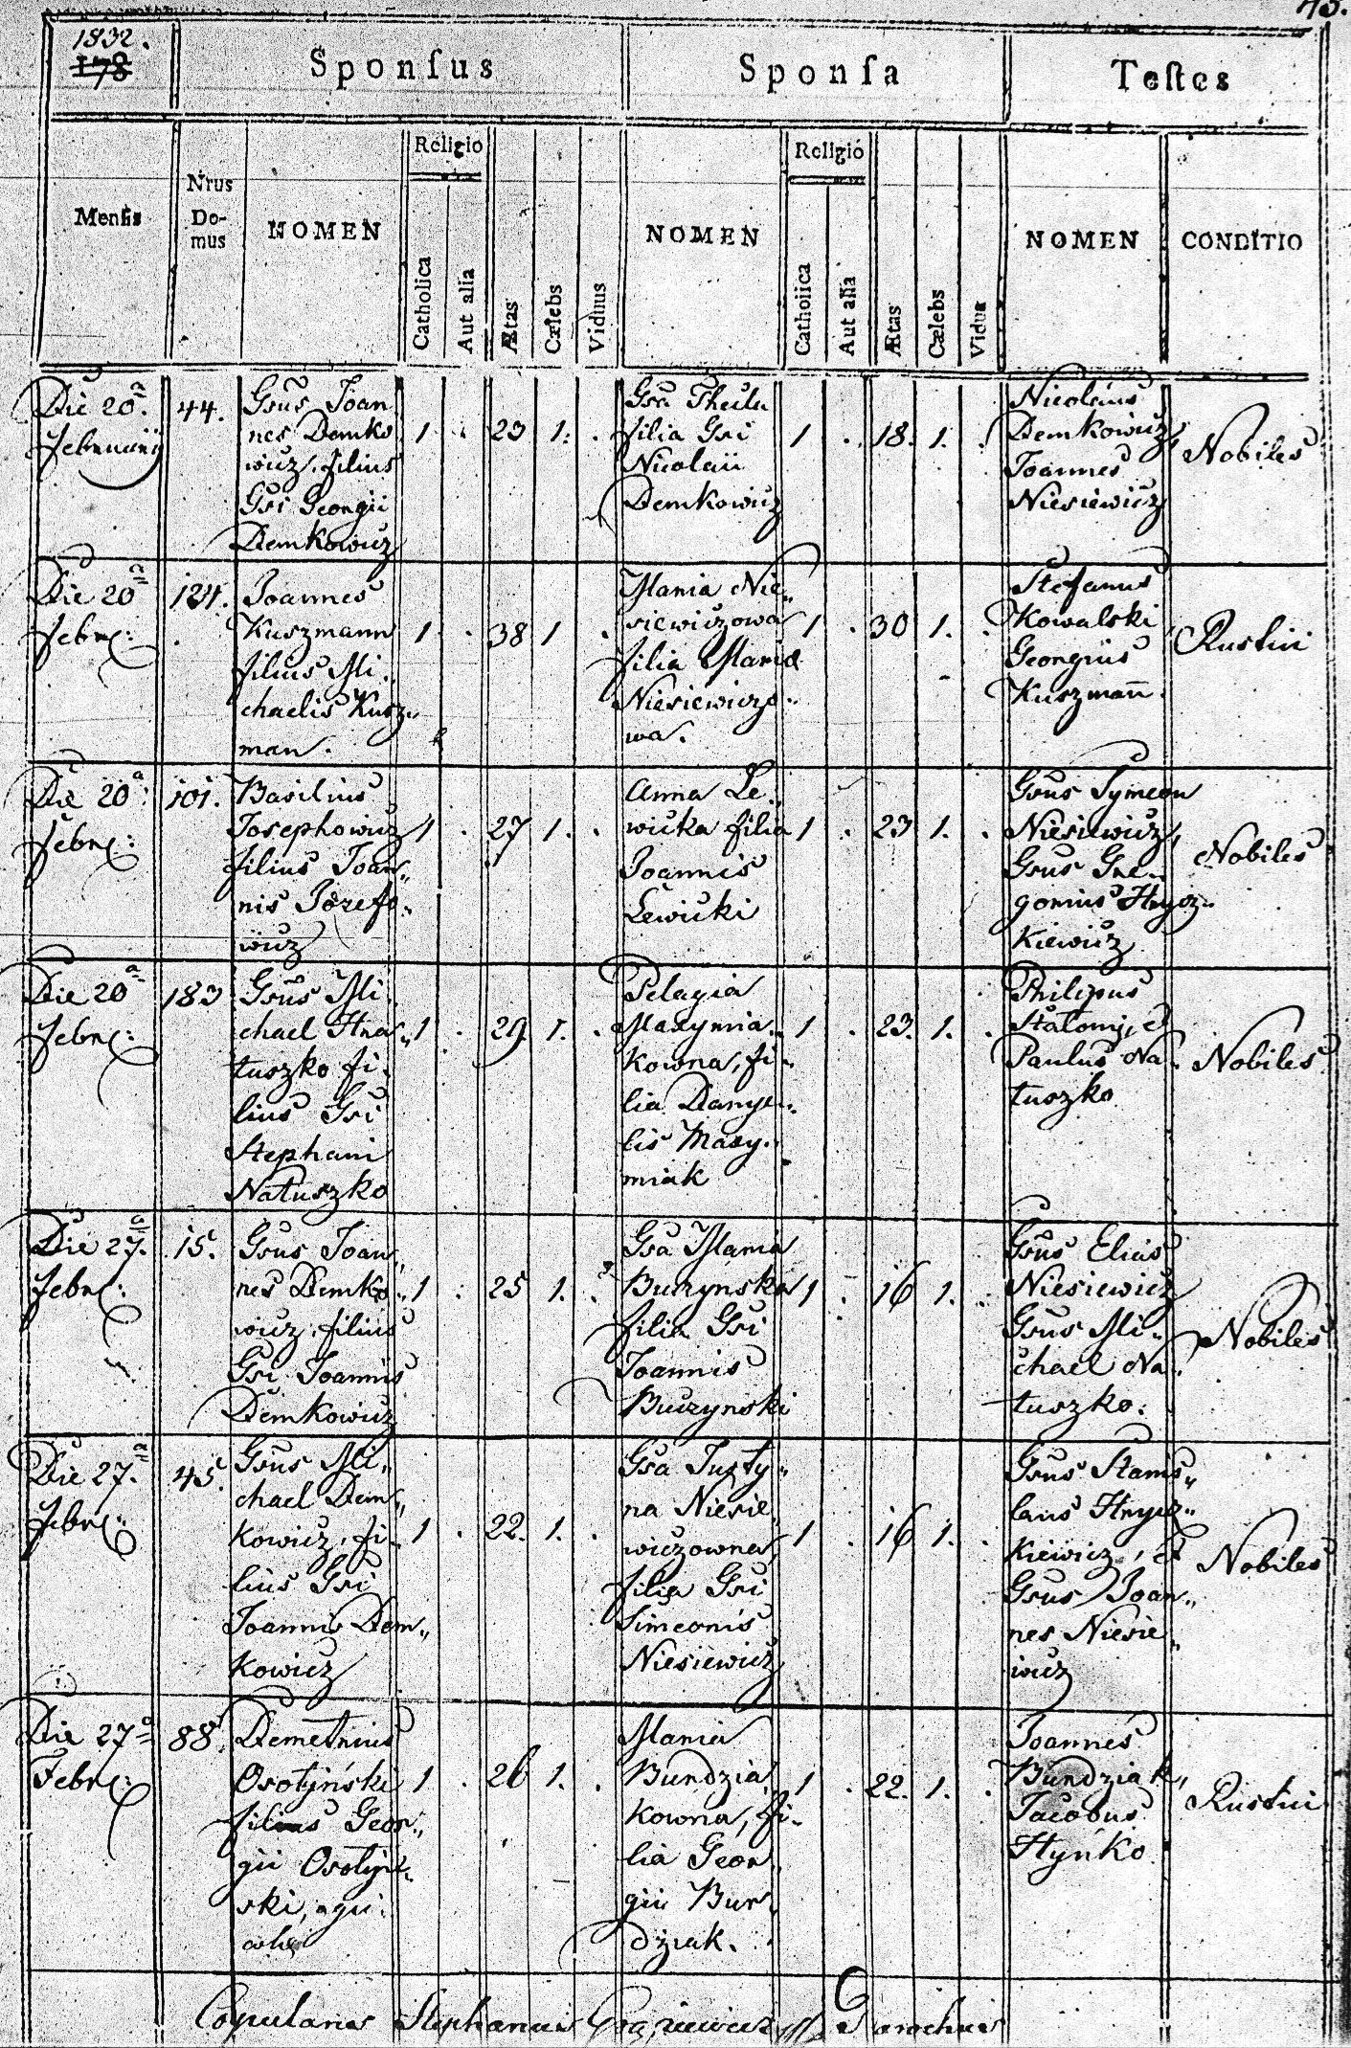 1832.
178
Sponsus
Sponsa
Testes
Mensis
Nrus
Do-
mus
NOMEN
Religio
Catholica
Aut alia
Ætas
Cælebs
Viduus
NOMEN
Religio
Catholica
Aut alia
Ætas
Cælebs
Vidua
NOMEN
CONDITIO
Die 20a
Februarij
44.
Gsus Joan
nes Demko
wicz, filius
Gsi Georgii
Demkowicz
1 . 23 1. .
Gsa Thecla
filia Gsi
Nicolaii
Demkowicz
1 . 18. 1. .
Nicolaus
Demkowicz,
Joannes
Niesiewicz
Nobiles
Die 20a
Febr:
124.
Joannes
Kuszmann
filius Mi„
chaelis Kusz„
man.
1 . 38 1 .
Maria Nie„
siewiczowa
filia Maria
Niesiewiczo„
wa.
1 . 30 1. .
Stefanus
Kowalski
Georgius
Kuszmañ.
Rustici
Die 20a
Febr:
101.
Basilius
Josephowicz
filius Joan„
nis Józefo„
wicz
1 . 27 1. .
Anna Le„
wicka filia
Joannis
Lewicki
1 . 23 1. .
Gsus Symeon
Niesiewicz,
Gsus Gre„
gorius Hrycz„
kiewicz
Nobiles
Die 20a
Febr:
183
Gsus Mi
chael Hna„
tuszko fi„
lius Gsi
Stephani
Natuszko
1 . 29. 1. .
Pelagia
Maxymia„
kowna, fi„
lia Danye„
lis Maxy„
miak
1 . 23. 1. .
Philipus
Stalony, et
Paulus Na„
tuszko
Nobiles
Die 27a
Febr:
15.
Gsus Joan„
nes Demko„
wicz, filius
Gsi Joannis
Demkowicz
1 . 25 1. .
Gsa Maria
Buczyńska
filia Gsi
Joannis
Buczynski
1 . 16 1. .
Gsus Elias
Niesiewicz
Gsus Mi„
chael Na„
tuszko.
Nobiles
Die 27a
Febr:
45.
Gsus Mi„
chael Dem„
kowicz, fi„
lius Gsi
Joannis Dem„
kowicz
1 . 22. 1. .
Gsa Justy„
na Niesie„
wiczowna,
filia Gsi
Simeonis
Niesiewicz
1 . 16 1. .
Gsus Stanis„
laus Hrycz„
kiewicz, et
Gsus Joan„
nes Niesie„
wicz
Nobiles
Die 27a
Febr:
88.
Demetrius
Osotyński
filius Geor„
gii Osotyń„
ski, agri„
1 . 26 1. .
Maria
Burdzia„
kowna, fi„
lia Geor„
gii Bur„
dziak.
1 . 22. 1. .
Joannes
Burdziak,
Jacobus
Hyńko
Rustici
Copulans Stephanus Parochus